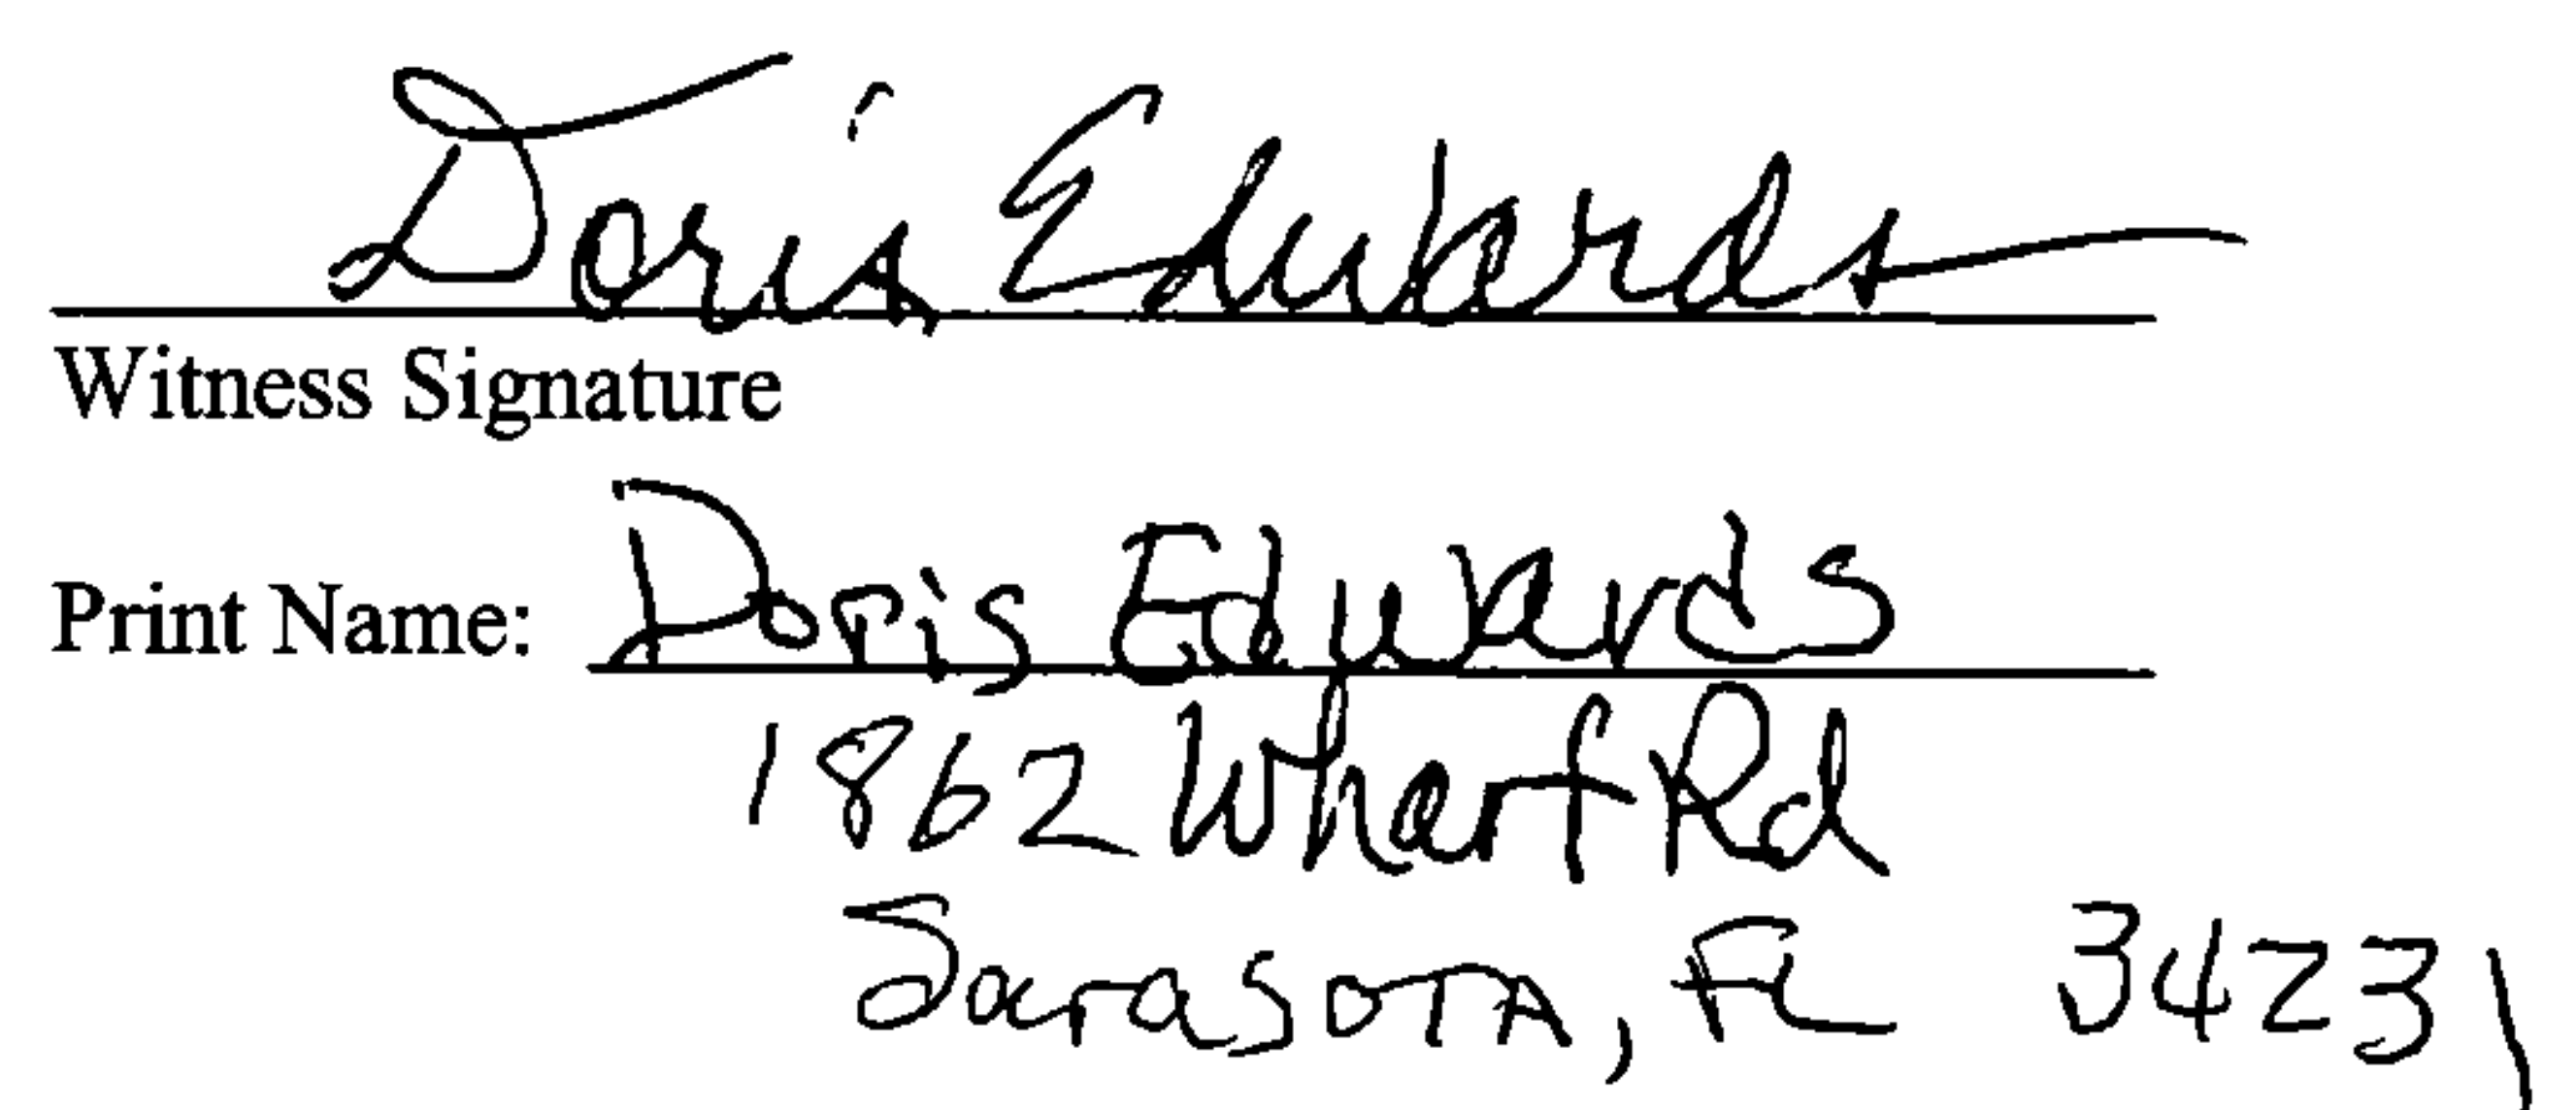 Doris Edwards
Witness Signature
Print Name: Doris Edwards
1862 Wharf Rd
Sarasota, FL 34231